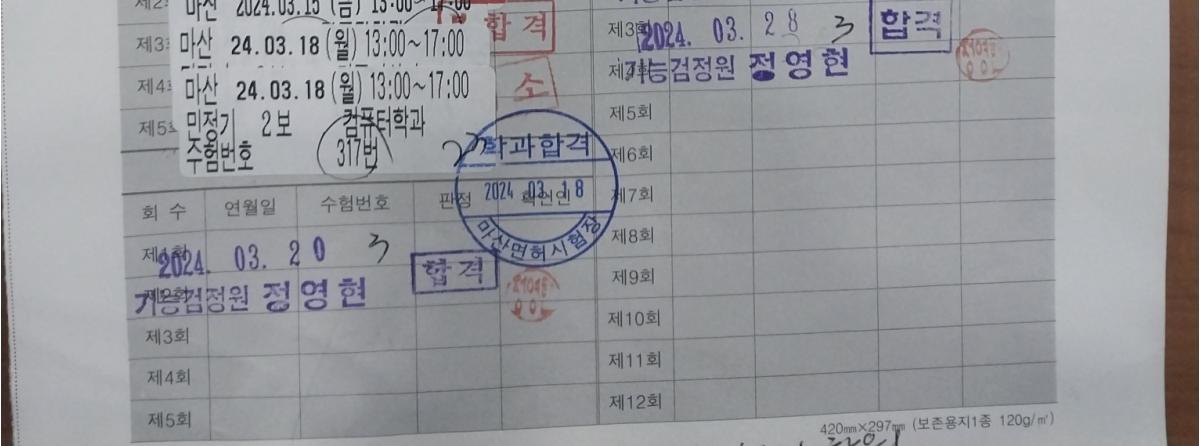 제2회
마산 2024.03.15 (금) 13:00~17:00
합격
제3회
마산 24.03.18 (월) 13:00~17:00
제4회
마산 24.03.18 (월) 13:00~17:00
소
제5회
민정기 2보 컴퓨터학과
수험번호 317번
23
학과합격
2024 03. 18
마산면허시험장
회 수 연월일 수험번호 판정 확인인
제1회
2024. 03. 20 3
합격
제2회
기능검정원 정영현
제3회
제4회
제5회
제3회
2024. 03. 28 3
합격
기능검정원 정영현
제5회
제6회
제7회
제8회
제9회
제10회
제11회
제12회
420㎜×297㎜ (보존용지1종 120g/㎡)